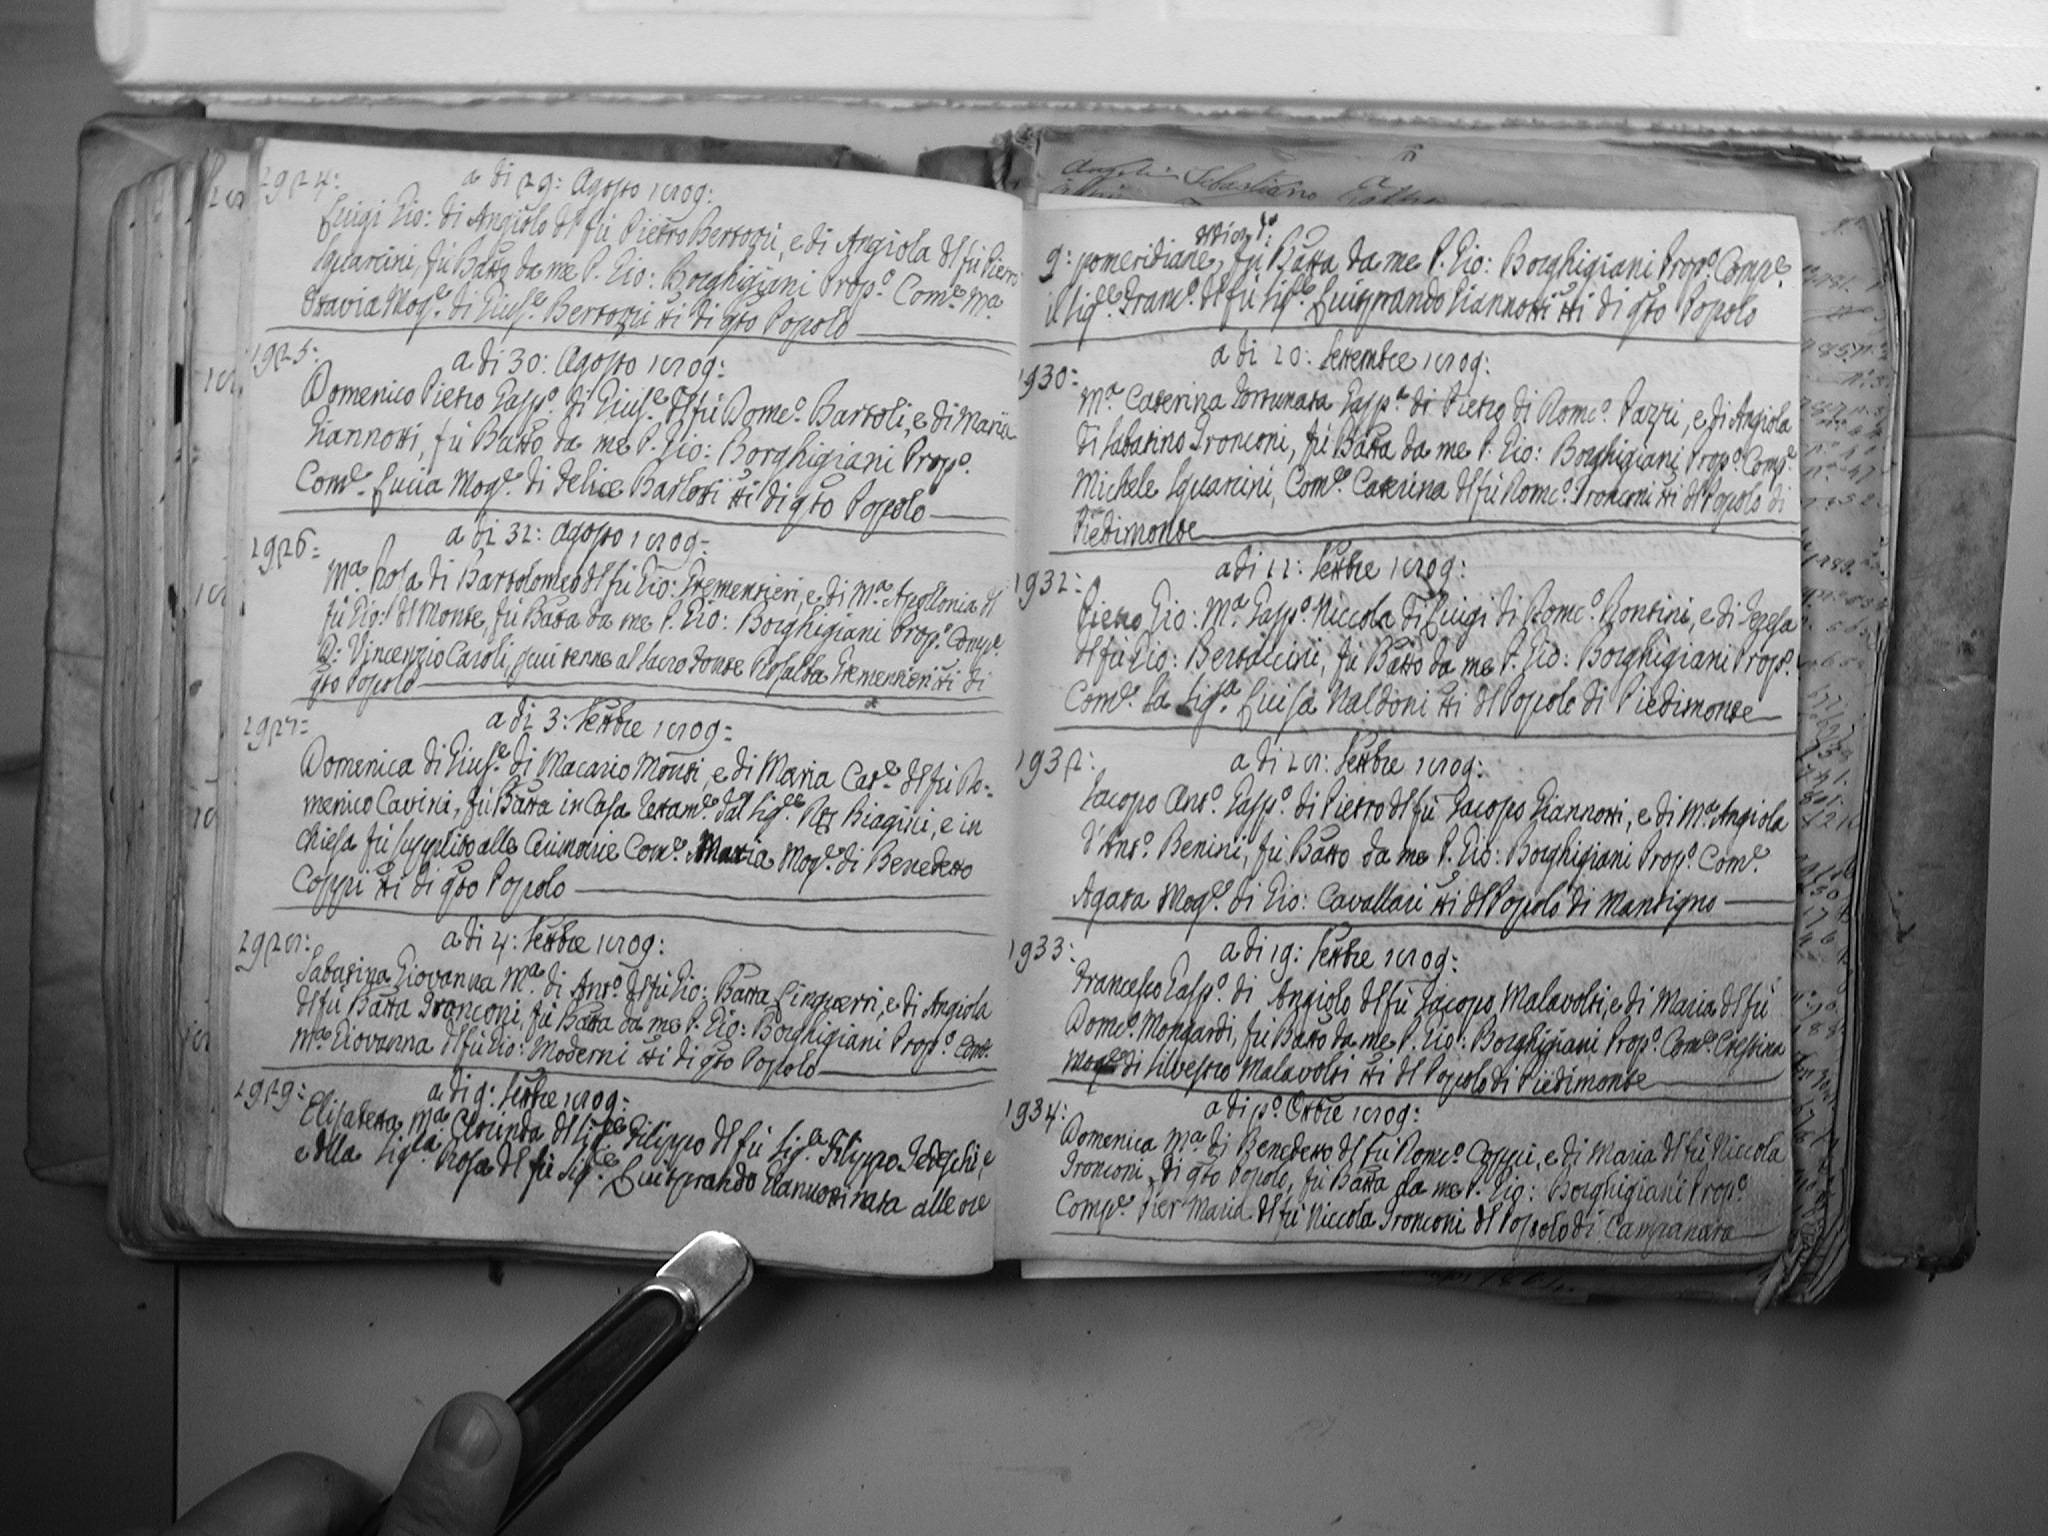 1924:
a di 29: Agosto 1809:
Luigi Gio: di Angiolo del fù Pietro Bertozzi, e di Angiola del fù Pietro
Squarcini, fù Batto da me P. Gio: Borghigiani Propo. Come. Ma.
Ottavia Moge. di Giuse. Bertozzi tti di qsto Popolo
1925:
a di 30: Agosto 1809:
Domenico Pietro Gaspo. di Giuse. del fù Domco. Bartoli, e di Maria
Giannotti, fù Batto da me P. Gio: Borghigiani Propo.
Come. Lucia Moge. di Felice Bartoli tti di qsto Popolo
1926:
a di 31: Agosto 1809:
Ma. Rosa di Bartolomeo del fù Gio: Frementieri, e di Ma. Apollonia del
fù Gio: del Monte, fù Batta da me P. Gio: Borghigiani Propo. Compe.
D: Vincenzio Caroli, qui tenne al Sacro Fonte Rosalba Frementieri tti di
qsto Popolo
1927:
a di 3: Settbre 1809:
Domenica di Giuse. di Macario Monti, e di Maria Cate. del fù Do:
menico Cavini, fù Batta in Casa dal Sige. Biagini, e in
Chiesa fù supplito alle Cerimonie Come. Maria Moge. di Benedetto
Coppi tti di qsto Popolo
1928:
a di 4: Settbre 1809:
Sabatina Giovanna Ma. di Anto. del fù Gio: Batta Linguerri, e di Angiola
del fù Batta Tronconi, fù Batta da me P. Gio: Borghigiani Propo. Come.
Ma. Giovanna del fù Gio: Moderni tti di qsto Popolo
1929:
a di 9: Settbre 1809:
Elisabetta Ma. Clorinda del Sige. Filippo del fù Sige. Filippo Tedeschi, e
e della Sigla. Rosa del fù Sige. Luitprando Giannotti nata alle ore
9: pomeridiane, fù Batta da me P. Gio: Borghigiani Propo. Compe.
il Sige. Franco. del fù Sige. Luitprando Giannotti tti di qsto Popolo
1930:
a di 10: Settembre 1809:
Ma. Caterina Fortunata Gaspa. di Pietro di Domco. Pazzi, e di Angiola
di Sabatino Tronconi, fù Batta da me P. Gio: Borghigiani Propo. Compe.
Michele Squarcini, Come. Caterina del fù Domco. Tronconi tti del Popolo di
Piedimonte
1931:
a di 11: Settbre 1809:
Pietro Gio: Ma. Gaspo. Niccola di Luigi di Domco. Rontini, e di Teresa
del fù Gio: Bertaccini, fù Batto da me P. Gio: Borghigiani Propo.
Come. la Siga. Luisa Naldoni tti del Popolo di Piedimonte
1932:
a di 18: Settbre 1809:
Jacopo Anto. Gaspo. di Pietro del fù Jacopo Giannotti, e di Ma. Angiola
d'Anto. Benini, fù Batto da me P. Gio: Borghigiani Propo. Come.
Agata Moge. di Gio: Cavallari tti del Popolo di Mantigno
1933:
a di 19: Settbre 1809:
Francesco Gaspo. di Angiolo del fù Jacopo Malavolti, e di Maria del fù
Domco. Mongardi, fù Batto da me P. Gio: Borghigiani Propo. Come. Crestina
Moge. di Silvestro Malavolti tti del Popolo di Piedimonte
1934:
a di po. Ottbre 1809:
Domenica Ma. di Benedetto del fù Domco. Coppi, e di Maria del fù Niccola
Tronconi, di qsto Popolo, fù Batta da me P. Gio: Borghigiani Propo.
Compe. Pier Maria del fù Niccola Tronconi del Popolo di Campanara